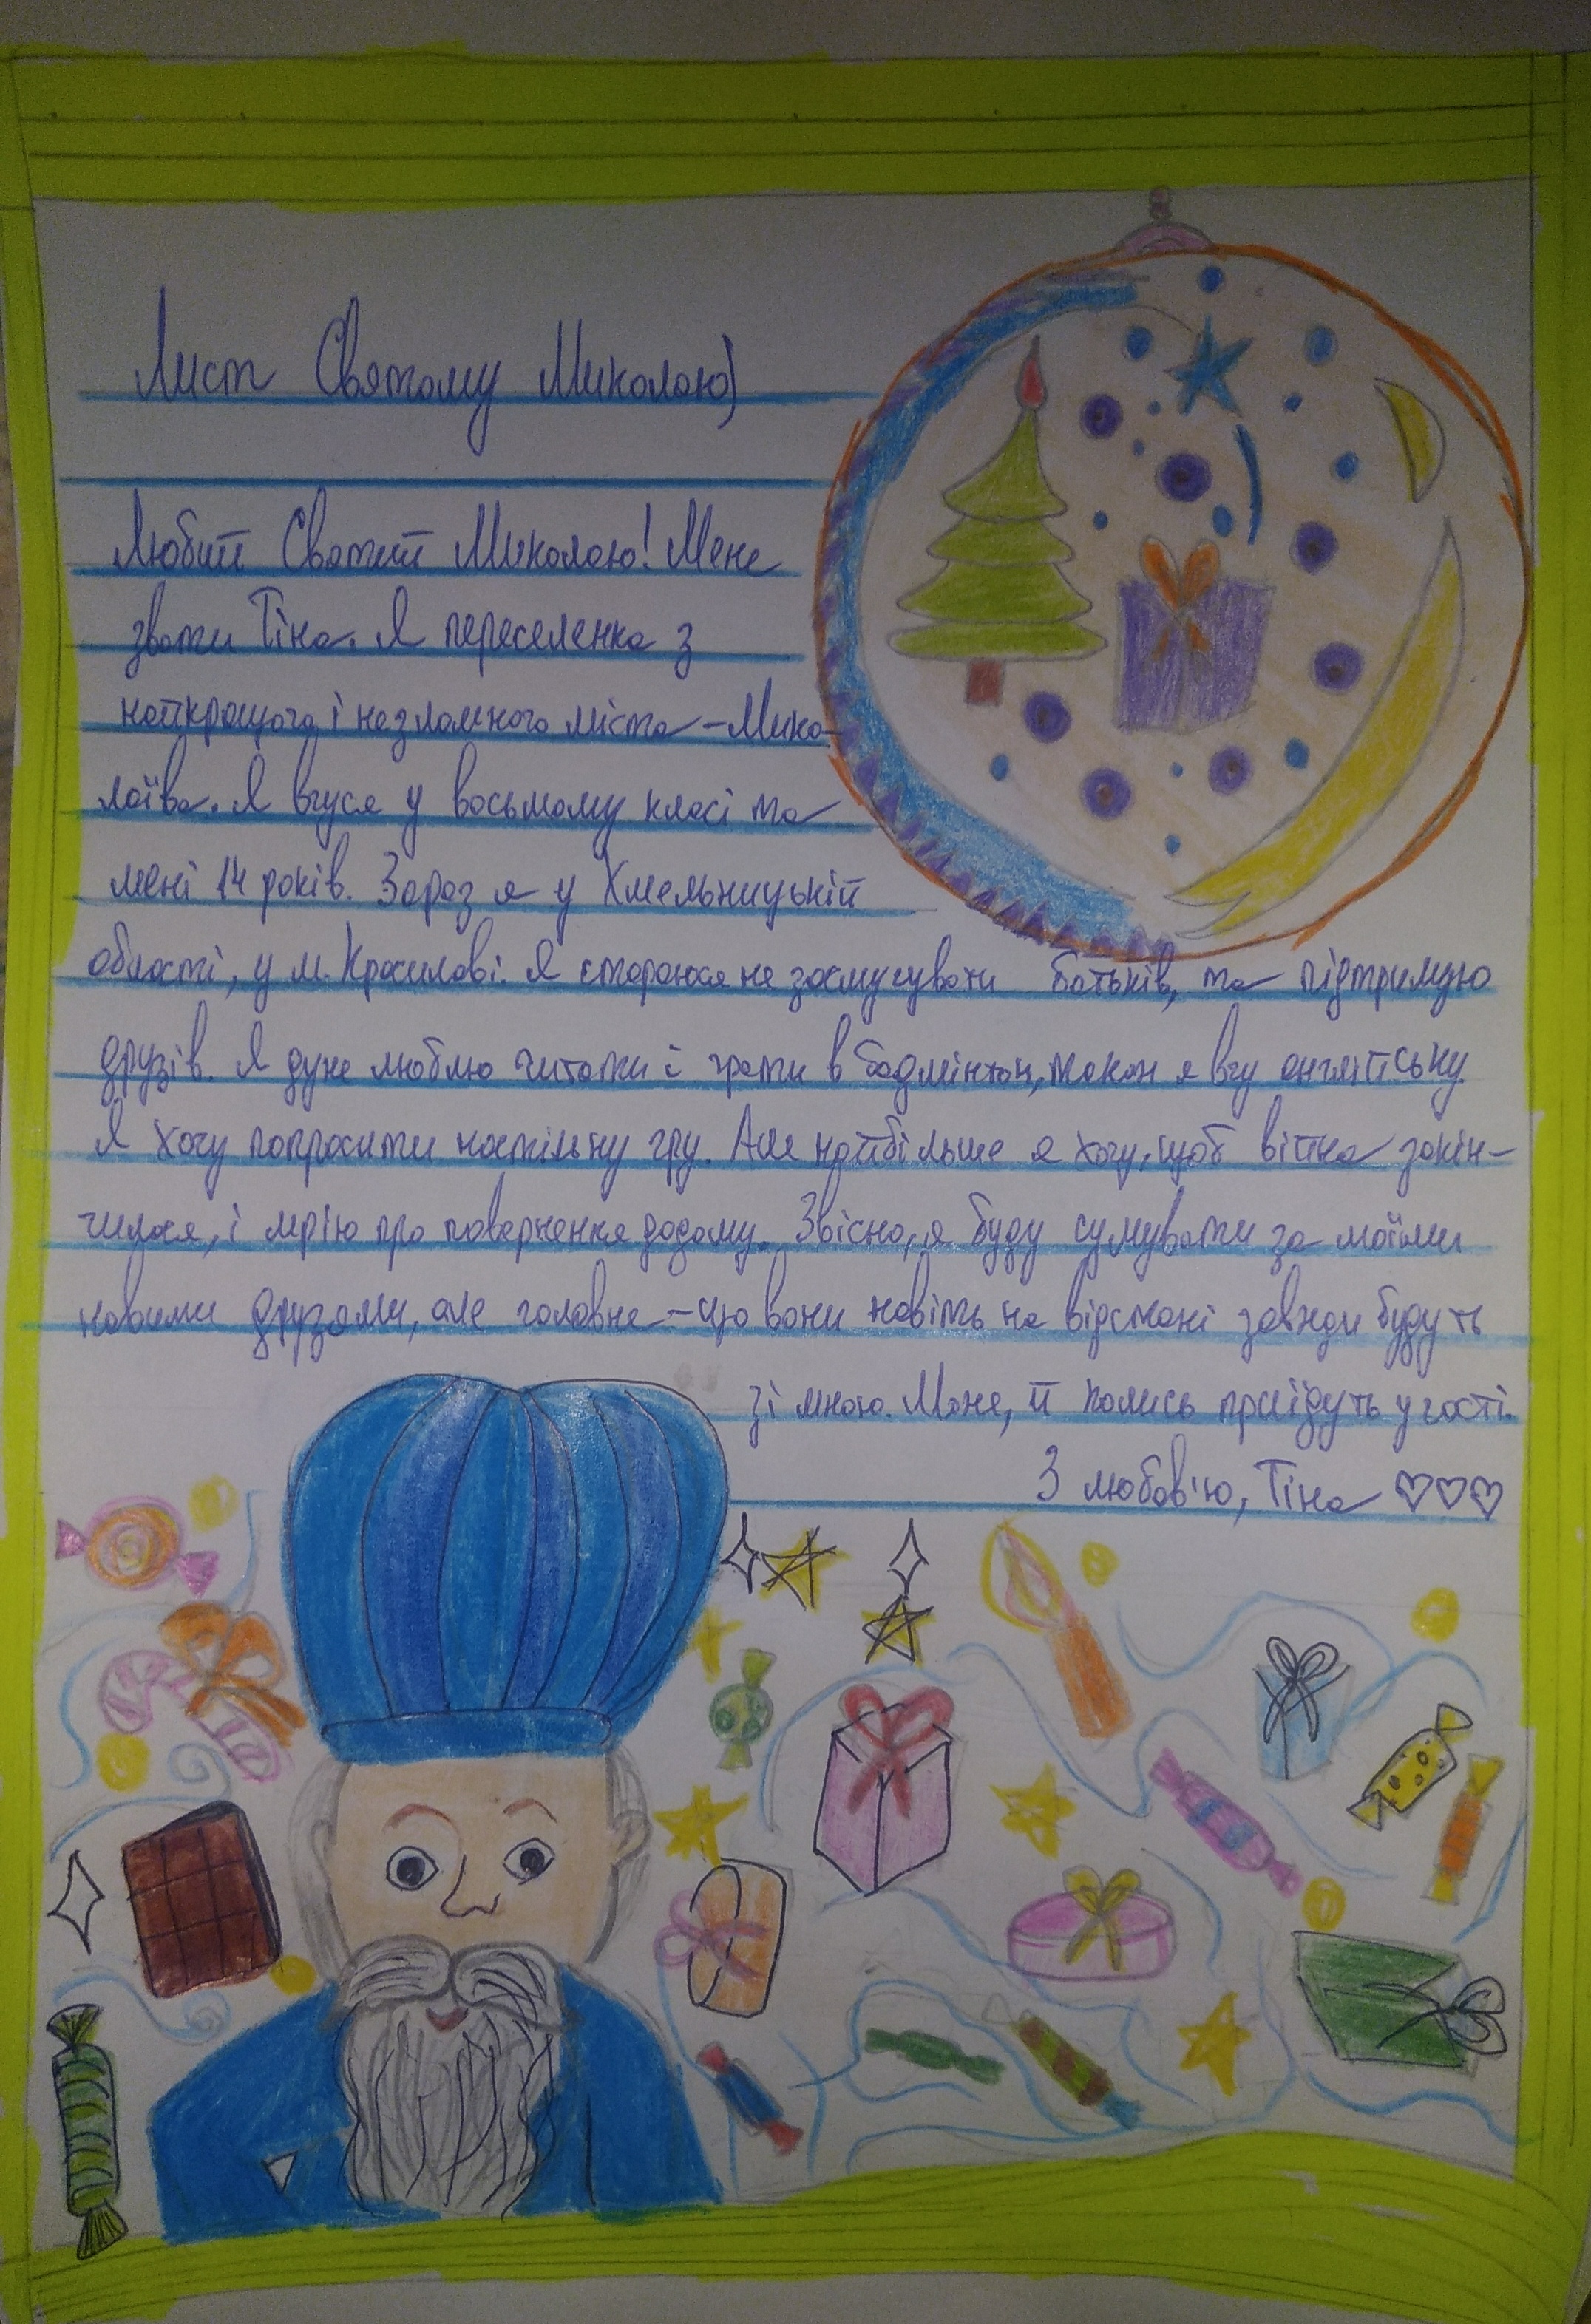 Лист Святому Миколаю)
Любий Святий Миколаю! Мене
звати Тіна. Я переселенка з
найкращого і незламного міста – Мико-
лаїва. Я вчуся у восьмому класі та
мені 14 років. Зараз я у Хмельницькій
області, у м. Красилові. Я стараюся не засмучувати батьків, та підтримую
друзів. Я дуже люблю читати і грати в бадмінтон, також я вчу англійську.
Я хочу попросити настільну гру. Але найбільше я хочу, щоб війна закін-
чилася, і мрію про повернення додому. Звісно, я буду сумувати за моїми
новими друзями, але головне – що вони навіть на відстані завжди будуть
зі мною. Може, й колись приїдуть у гості.
З любов'ю, Тіна ♡♡♡